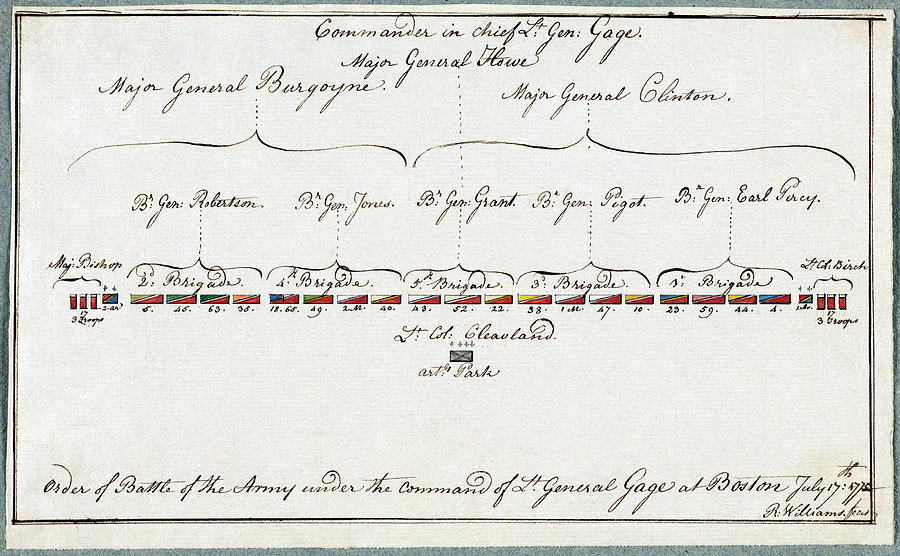 Commander in chief Lt. Gen: Gage.
Major General Howe
Major General Burgoyne.
Major General Clinton.
Br. Gen: Robertson.
Br. Gen: Jones.
Br. Gen: Grant.
Br. Gen: Pigot.
Br. Gen: Earl Percy.
Maj: Bishop
2d. Brigade.
4th. Brigade.
5th. Brigade.
3d. Brigade.
1st. Brigade
Lt. Col: Birch
17
3 troops
2. Ar.
5. 45. 63. 35.
18.65. 49. 2.M. 40.
43. 52. 22.
38. 1.M. 47. 10.
23. 59. 44. 4.
1. Ar.
17
3 troops
Lt. Col: Cleavland.
arty. Park
Order of Battle of the Army under the command of Lt. General Gage at Boston July 17:th 1775
R: Williams. fecit